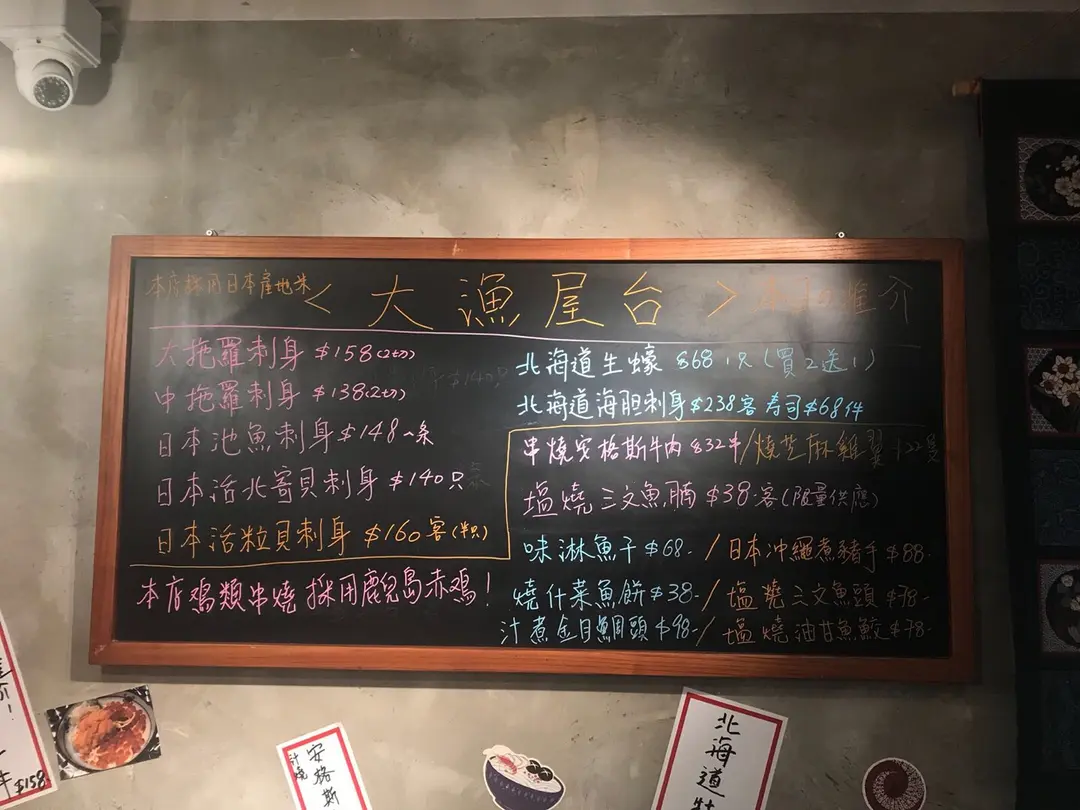 本店採用日本產地米
<大漁屋台>
推介
大拖羅刺身 $158(2切)
中拖羅刺身 $138(2切)
日本池魚刺身 $148 一条
日本活北寄貝刺身 $140只
日本活粒貝刺身 $160客(半只)
本店鸡類串燒採用鹿兒島赤鸡!
北海道生蠔 $68 1只(買2送1)
北海道海胆刺身$238客 寿司$68件
串燒安格斯牛肉 $32牛/燒芝麻雞翼
塩燒三文魚腩 $38.客(限量供應)
味淋魚干 $68./日本冲繩煮豬手 $88.
燒什菜魚餅 $38-/塩燒三文魚頭 $78-
汁煮金目鯛頭 $98-/塩燒油甘魚鮫 $78-
介!
牛 $158
安格斯
汁燒
北海道牡